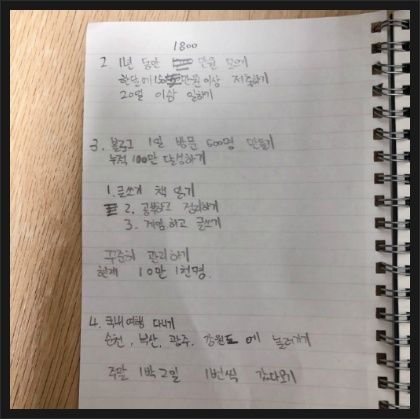 1800
2 1년 동안 만원 모으기
한달에 150만원이상 저축하기
20일 이상 일하기
3. 블로그 1일 방문 500명 만들기
누적 100만 달성하기
1. 글쓰기 책 읽기
2. 공부하고 정리하기
3. 게임하고 글쓰기
꾸준히 관리하기
현재 10만 1천명.
4. 국내여행 다니기
순천, 부산, 광주, 강원도에 놀러가기
주말 1박2일 1번씩 갔다오기